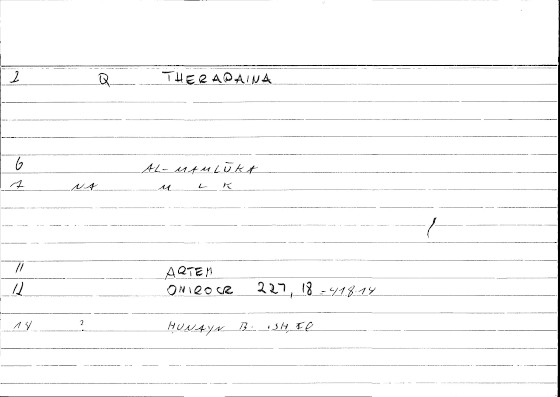 2 Q THERAPAINA
6 AL-MAMLŪKA
7 NA M L K
11 ARTEM
12 ONIROCR 227, 18 = 418 14
14 ? HUNAYN B. ISH